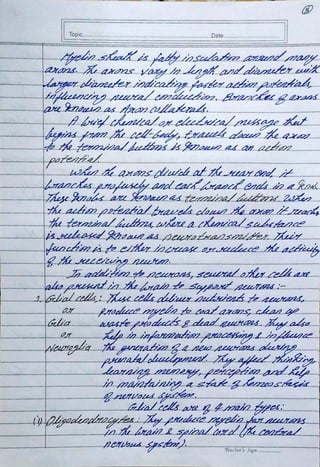 ③
Topic Date
Myelin sheath is fatty insulation around many
axons. The axons vary in length and diameter with
larger diameter indicating faster action potentials,
influencing neural conduction. Branches of axons
are known as Axon collaterals.
A brief chemical or electrical message that
begins from the cell-body, travels down the axon
to the terminal buttons is known as an action
potential.
When the axons divide at the near end, it
branches profusely and each branch ends in a
These are known as terminal buttons. When
the action potential travels down the axon it reaches
the terminal buttons, where a chemical substance
is released known as neurotransmitter. Their
function is to either increase or reduce the activity
of the receiving neuron.
In addition to neurons, several other cells are
also present in the brain to support neurons:-
1. Glial cells: These cells deliver nutrients to neurons,
or produce myelin to coat axons, clean up
Glia waste products & dead neurons. They also
or help in information processing & influence
Neuroglia the generation of new neurons during
prenatal development. They affect thinking
learning memory, perception and help
in maintaining a state of homeostasis
of nervous system.
Glial cells are of 4 main types:
i) Oligodendrocytes: They produce myelin for neurons
in the brain & spinal cord (the central
nervous system).
Teacher's Sign